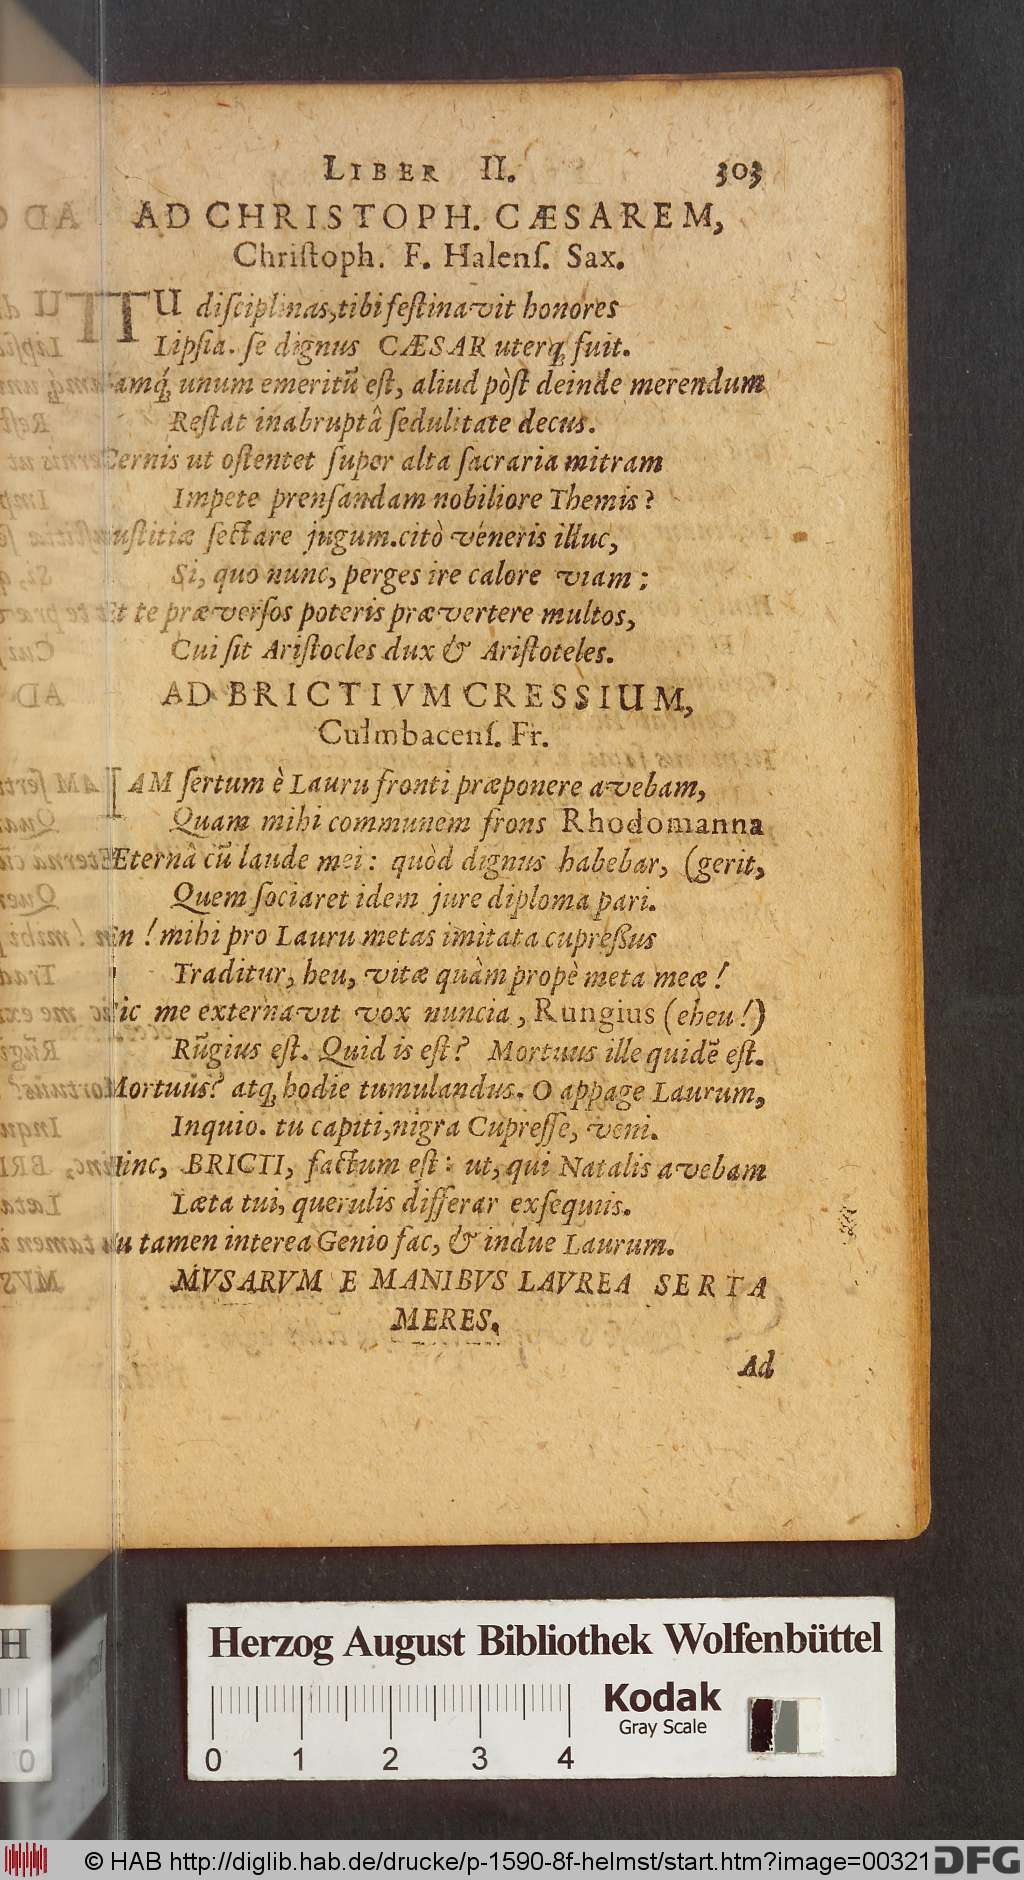 LIBER II. 303
AD CHRISTOPH. CÆSAREM,
Chriſtoph. F. Halenſ. Sax.
TU diſciplinas, tibi feſtinavit honores
Lipſia. ſe dignus CÆSAR uterq; fuit.
amq́; unum emeritũ eſt, aliud pòſt deinde merendum
Reſtat inabruptâ ſedulitate decus.
Cernis ut oſtentet ſuper alta ſacraria mitram
Impete prenſandam nobiliore Themis?
uſtitiæ ſectare jugum. citò véneris illuc,
Si, quo nunc, perges ire calore viam:
Et te præverſos poteris prævertere multos,
Cui ſit Ariſtocles dux & Ariſtoteles.
AD BRICTIVM CRESSIUM,
Culmbacenſ. Fr.
IAM ſertum è Lauru fronti præponere avebam,
Quam mihi communem frons Rhodomanna
Æternâ cũ laude mei: quòd dignus habebar, (gerit,
Quem ſociaret idem jure diploma pari.
En! mihi pro Lauru metas imitata cupreßus
Traditur, heu, vitæ quàm propè meta meæ!
Sic me externavit vox nuncia, Rungius (eheu!)
Rũgius eſt. Quid is eſt? Mortuus ille quidẽ eſt.
Mortuus? atq; hodie tumulandus. O appage Laurum,
Inquio. tu capiti, nigra Cupreſſe, veni.
Hinc, BRICTI, factum eſt: ut, qui Natalis avebam
Læta tui, querulis differar exſequiis.
Tu tamen interea Genio fac, & indue Laurum.
MVSARVM E MANIBVS LAVREA SERTA
MERES.
Ad
Herzog August Bibliothek Wolfenbüttel
Kodak
Gray Scale
0 1 2 3 4
H
0
© HAB http://diglib.hab.de/drucke/p-1590-8f-helmst/start.htm?image=00321
DFG